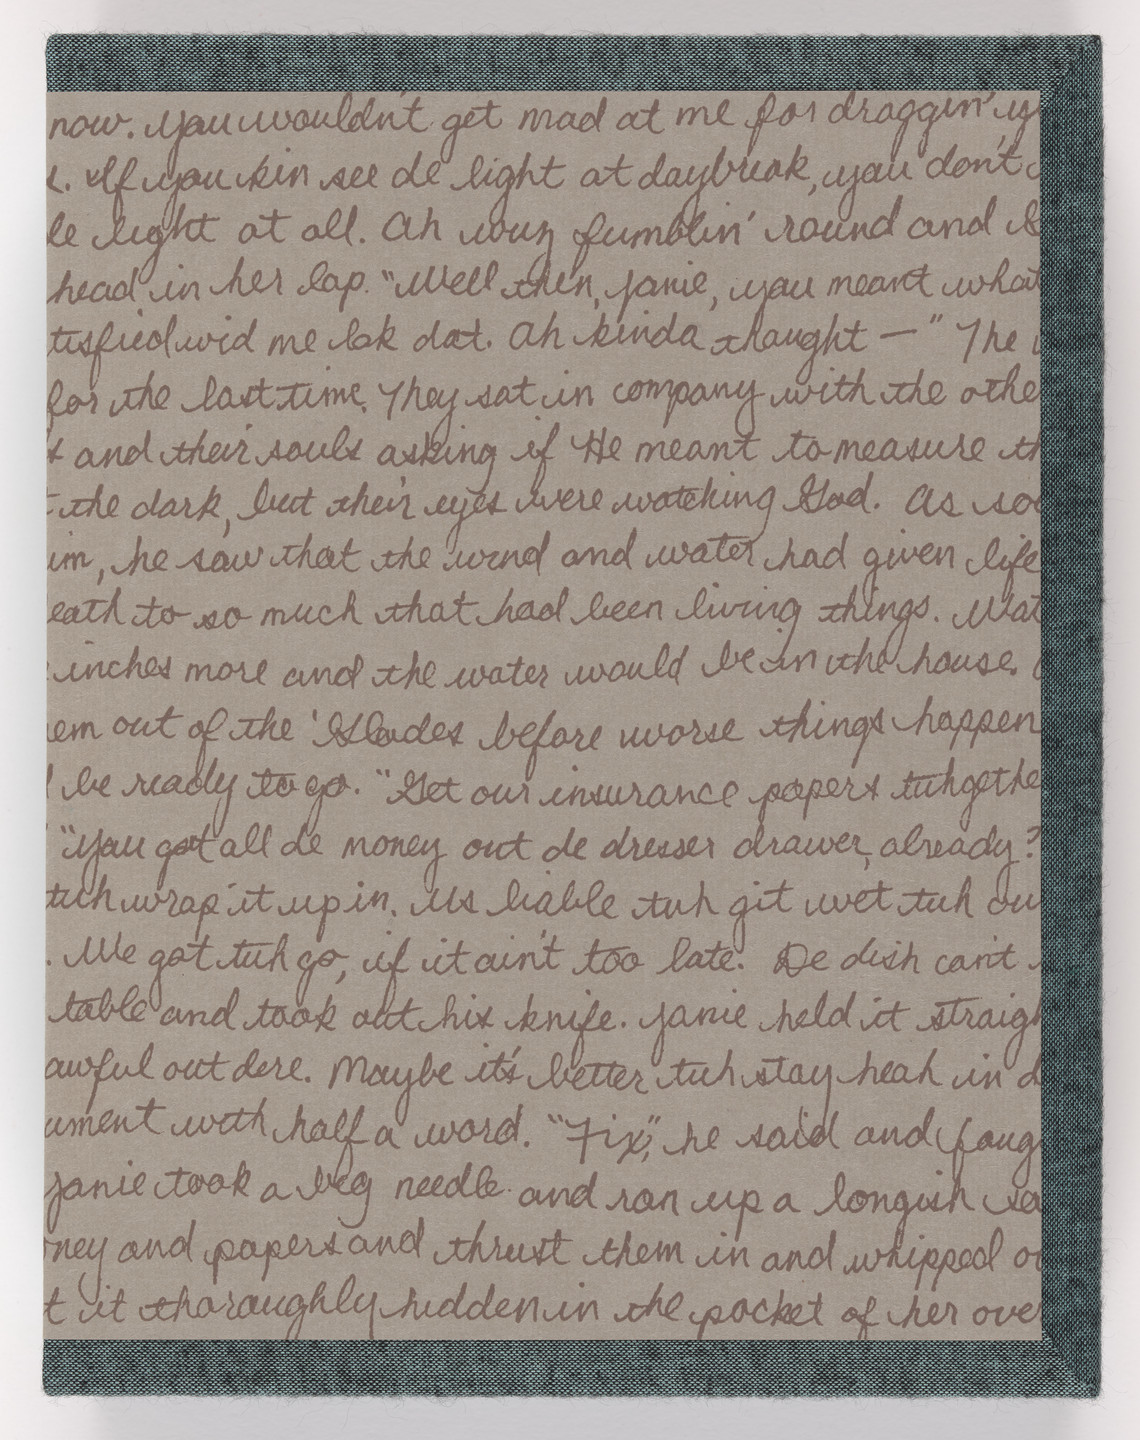 now. you wouldn't get mad at me for draggin' y
. If you kin see de light at daybreak, you don't
de light at all. Ah wuz fumblin' round and
head in her lap. "Well then, Janie, you meant what
tisfied wid me lak dat. Ah kinda thought — " The
for the last time. They sat in company with the othe
s and their souls asking if He meant to measure th
t the dark, but their eyes were watching God. As soo
im, he saw that the wind and water had given life
eath to so much that had been living things. Wat
inches more and the water would be in the house.
em out of the 'Glades before worse things happen
be ready to go. "Get our insurance papers tuhgethe
"You got all de money out de dresser drawer, already?
tuh wrap it up in. Us liable tuh git wet tuh ou
. We got tuh go, if it ain't too late. De dish can't
table and took out his knife. Janie held it straigh
awful out dere. Maybe it's better tuh stay heah in d
ument with half a word. "Fix," he said and foug
Janie took a big needle and ran up a longish sa
ney and papers and thrust them in and whipped o
t it thoroughly hidden in the pocket of her over